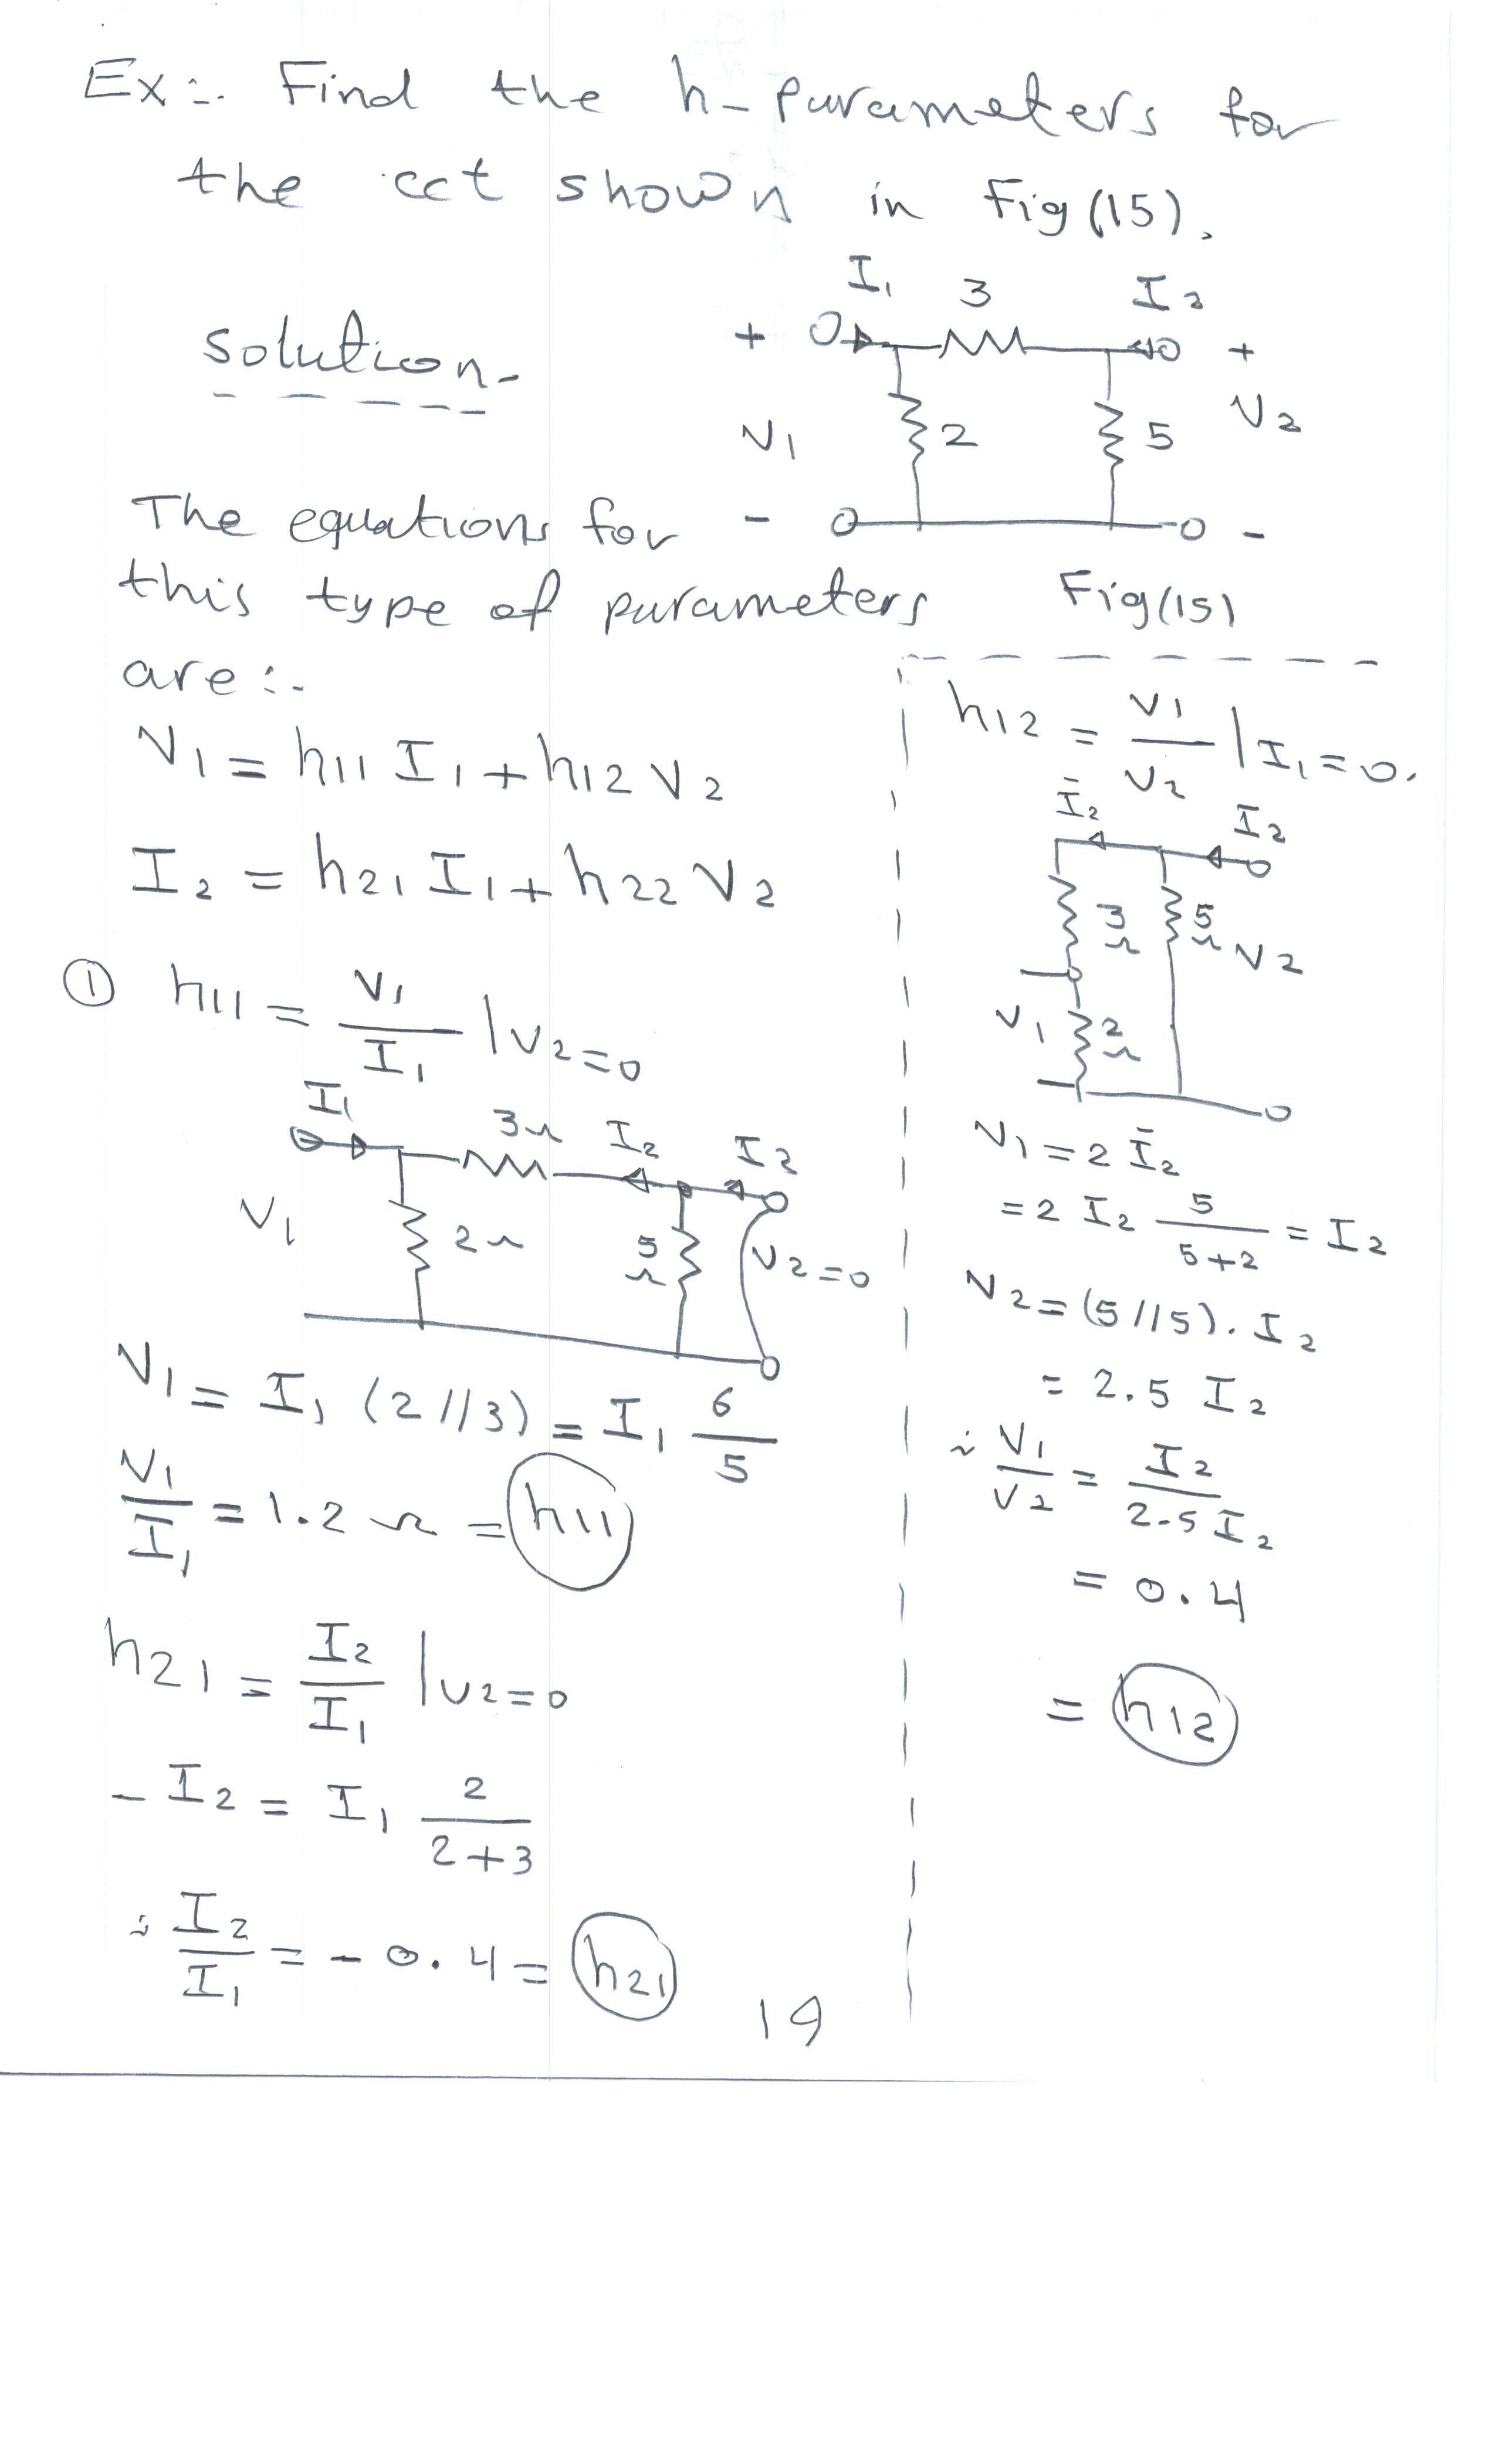 Ex:- Find the h-parameters for
the cct shown in Fig(15).
Solution-
I1 3 I2
+ +
V1 2 5 V2
- -
Fig(15)
The equations for
this type of parameters
are:-
V1 = h11 I1 + h12 V2
I2 = h21 I1 + h22 V2
① h11 = V1/I1 | V2=0
I1 3Ω I2 I2
V1 2Ω 5Ω V2=0
V1 = I1 (2//3) = I1 6/5
V1/I1 = 1.2 Ω = h11
h21 = I2/I1 | V2=0
-I2 = I1 2/(2+3)
∴ I2/I1 = -0.4 = h21
h12 = V1/V2 | I1=0.
Ī2 I2
3Ω 5Ω V2
V1 2Ω
V1 = 2 Ī2
= 2 I2 5/(5+2) = I2
V2 = (5//5). I2
= 2.5 I2
∴ V1/V2 = I2/2.5 I2
= 0.4
= h12
19